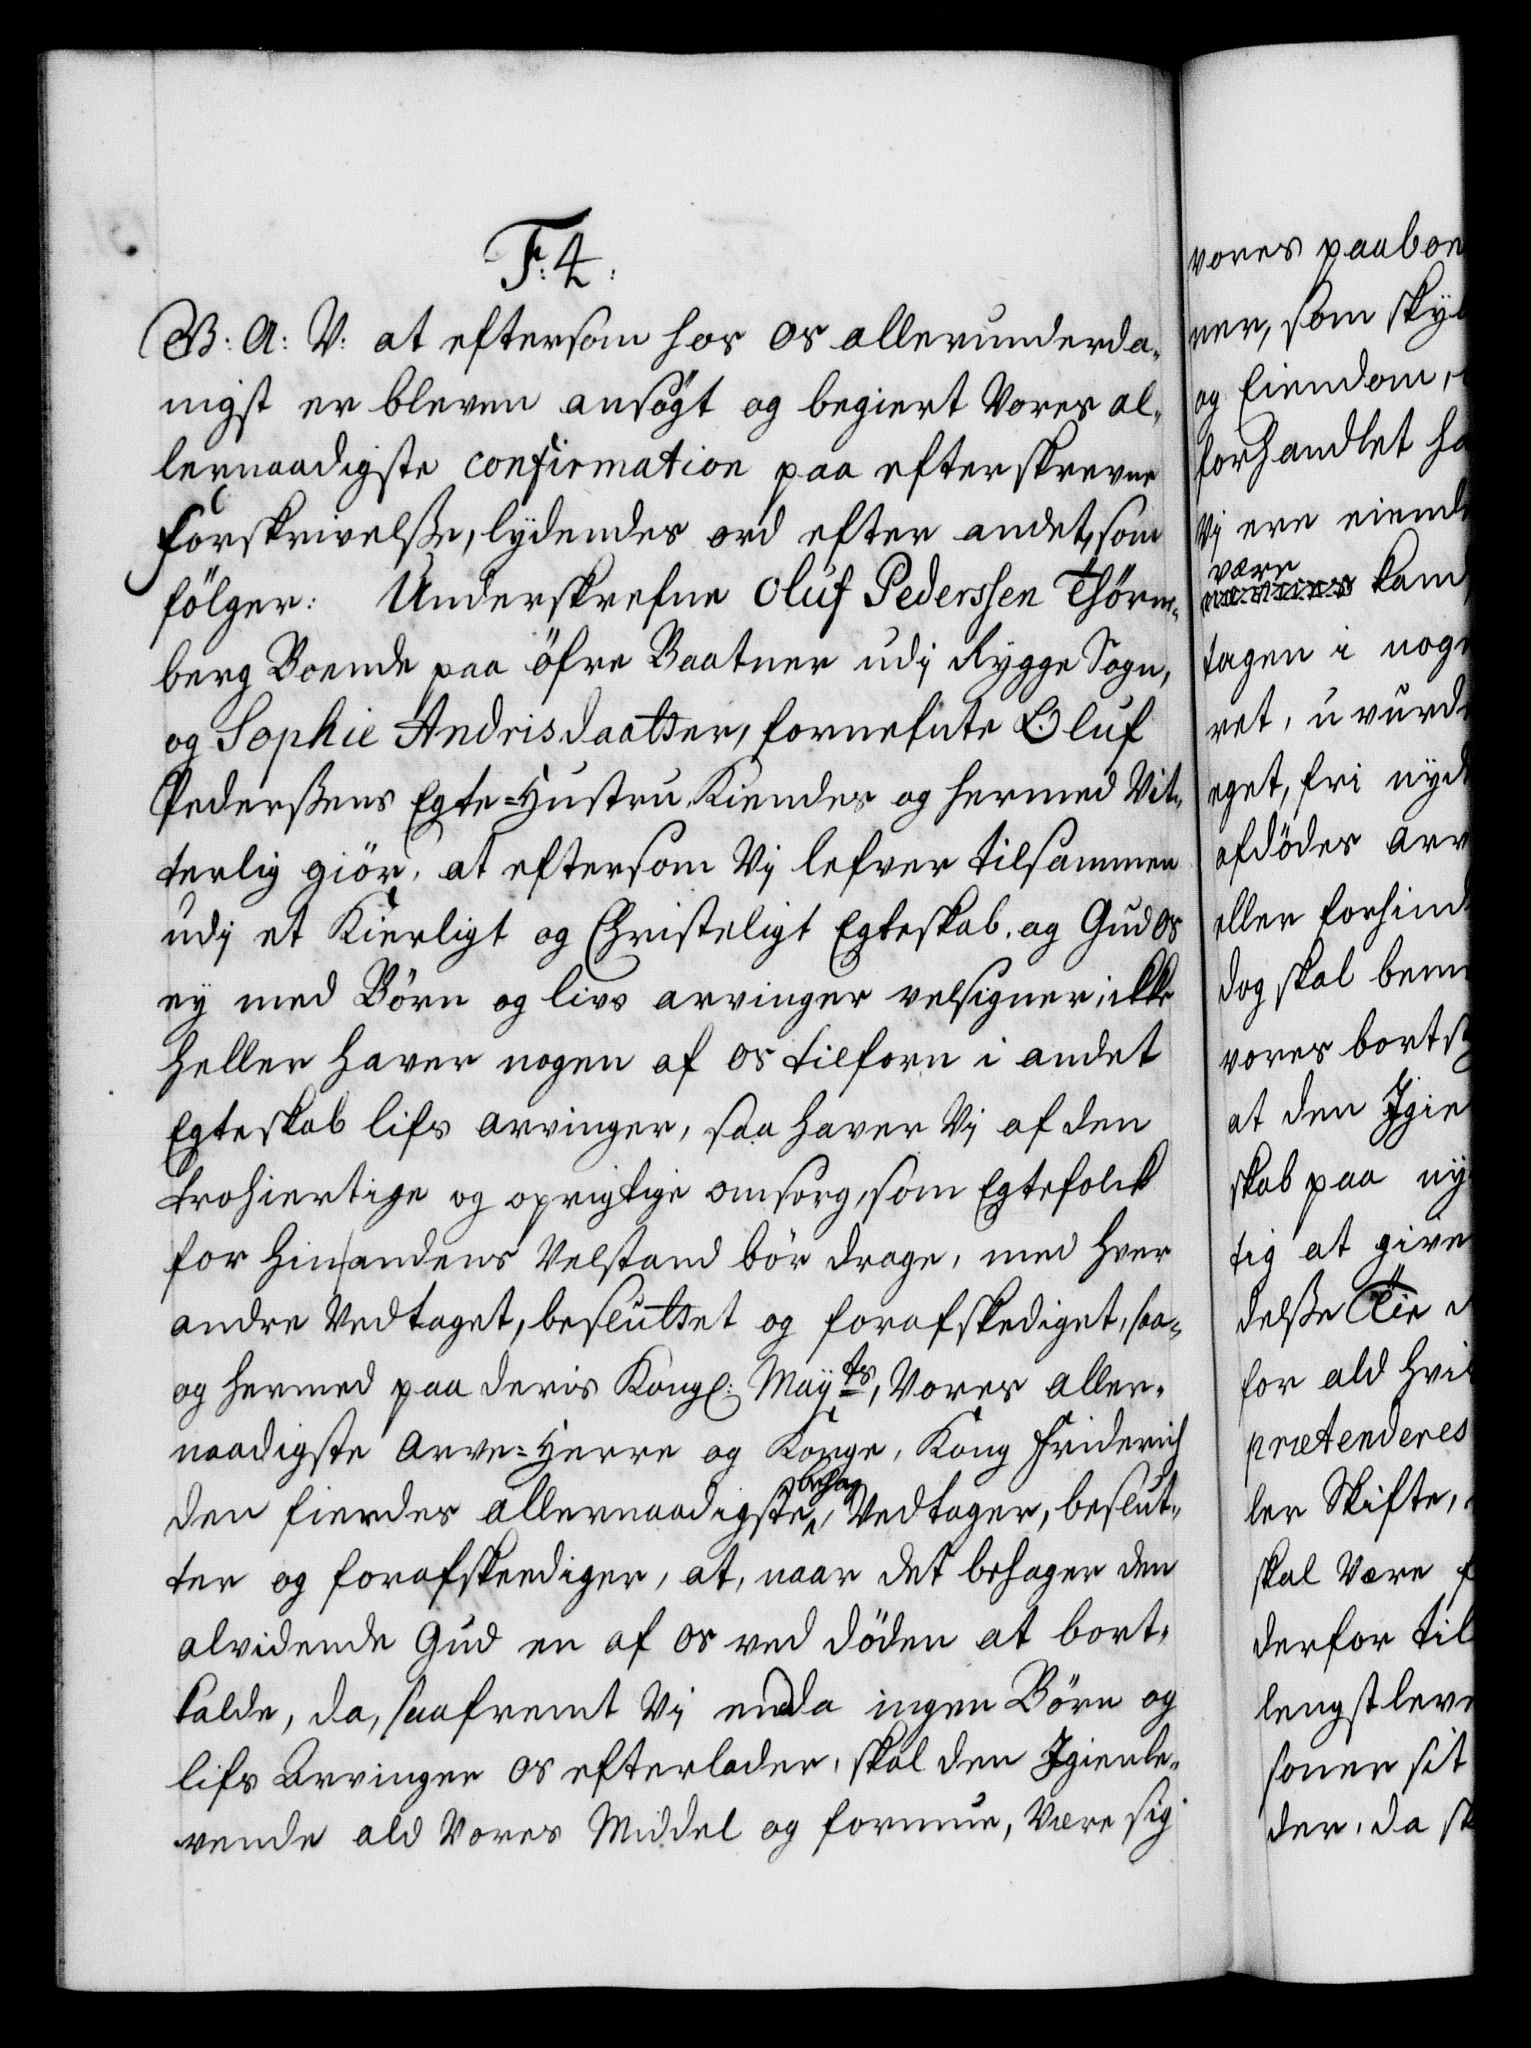 F: 4.
G: A: V: at eftersom hos os allerunderda-
nigst er bleven ansøgt og begiert Vores al-
lernaadigste confirmation paa efterskrevne
forskrivelsse, lydendes ord efter andet, som
fölger: Underskrefne Oluf Pederssen Thörn-
berg Boende paa öfre Baatner udj Rygge Sogn,
og Sophie Andrisdaatter, fornefnte Oluf
Pederssens Egte-Hustru Kiendes og hermed Vit-
terlig giör, at eftersom Vj lefver tilsammen
udj et Kierligt og Christeligt Egteskab, og Gud os
ey med Børn og livs arvinger velsigner, ikke
heller haver nogen af os tilforn i andet
Egteskab lifs arvinger, saa haver Vj af den
trohiertige og oprigtige omsorg, som Egtefolck
for hinandens Velstand bör drage, med hver
andre Vedtaget, besluttet og forafskediget, saa-
og hermed paa deris Kongl: Maÿts, Vores aller-
naadigste Arve-Herre og Konge, Kong Friderich
den fierdes allernaadigste behag, Vedtager, beslut-
ter og forafskeediger, at, naar det behager den
alvidende Gud en af os ved döden at bort-
kalde, da, saafremt Vj enda ingen Börn og
lifs Arvinger os efterlader, skal den Igienle-
vende ald Vores Middel og formue, Være sig
vores paaboe
ner, som sky
og Eiendom,
forhandlet ha
Vj ere eiend
være
kand
tagen i noge
ret, u vurd
eget, fri nyd
afdödes arv
eller forhind
dog skal bem
vores bort
at den Igie
skab paa ny
tig at give
delsse
for ald hvi
prætenderes
ler Skifte,
skal Være f
derfor til
lengstleve
soner sit
der, da sk